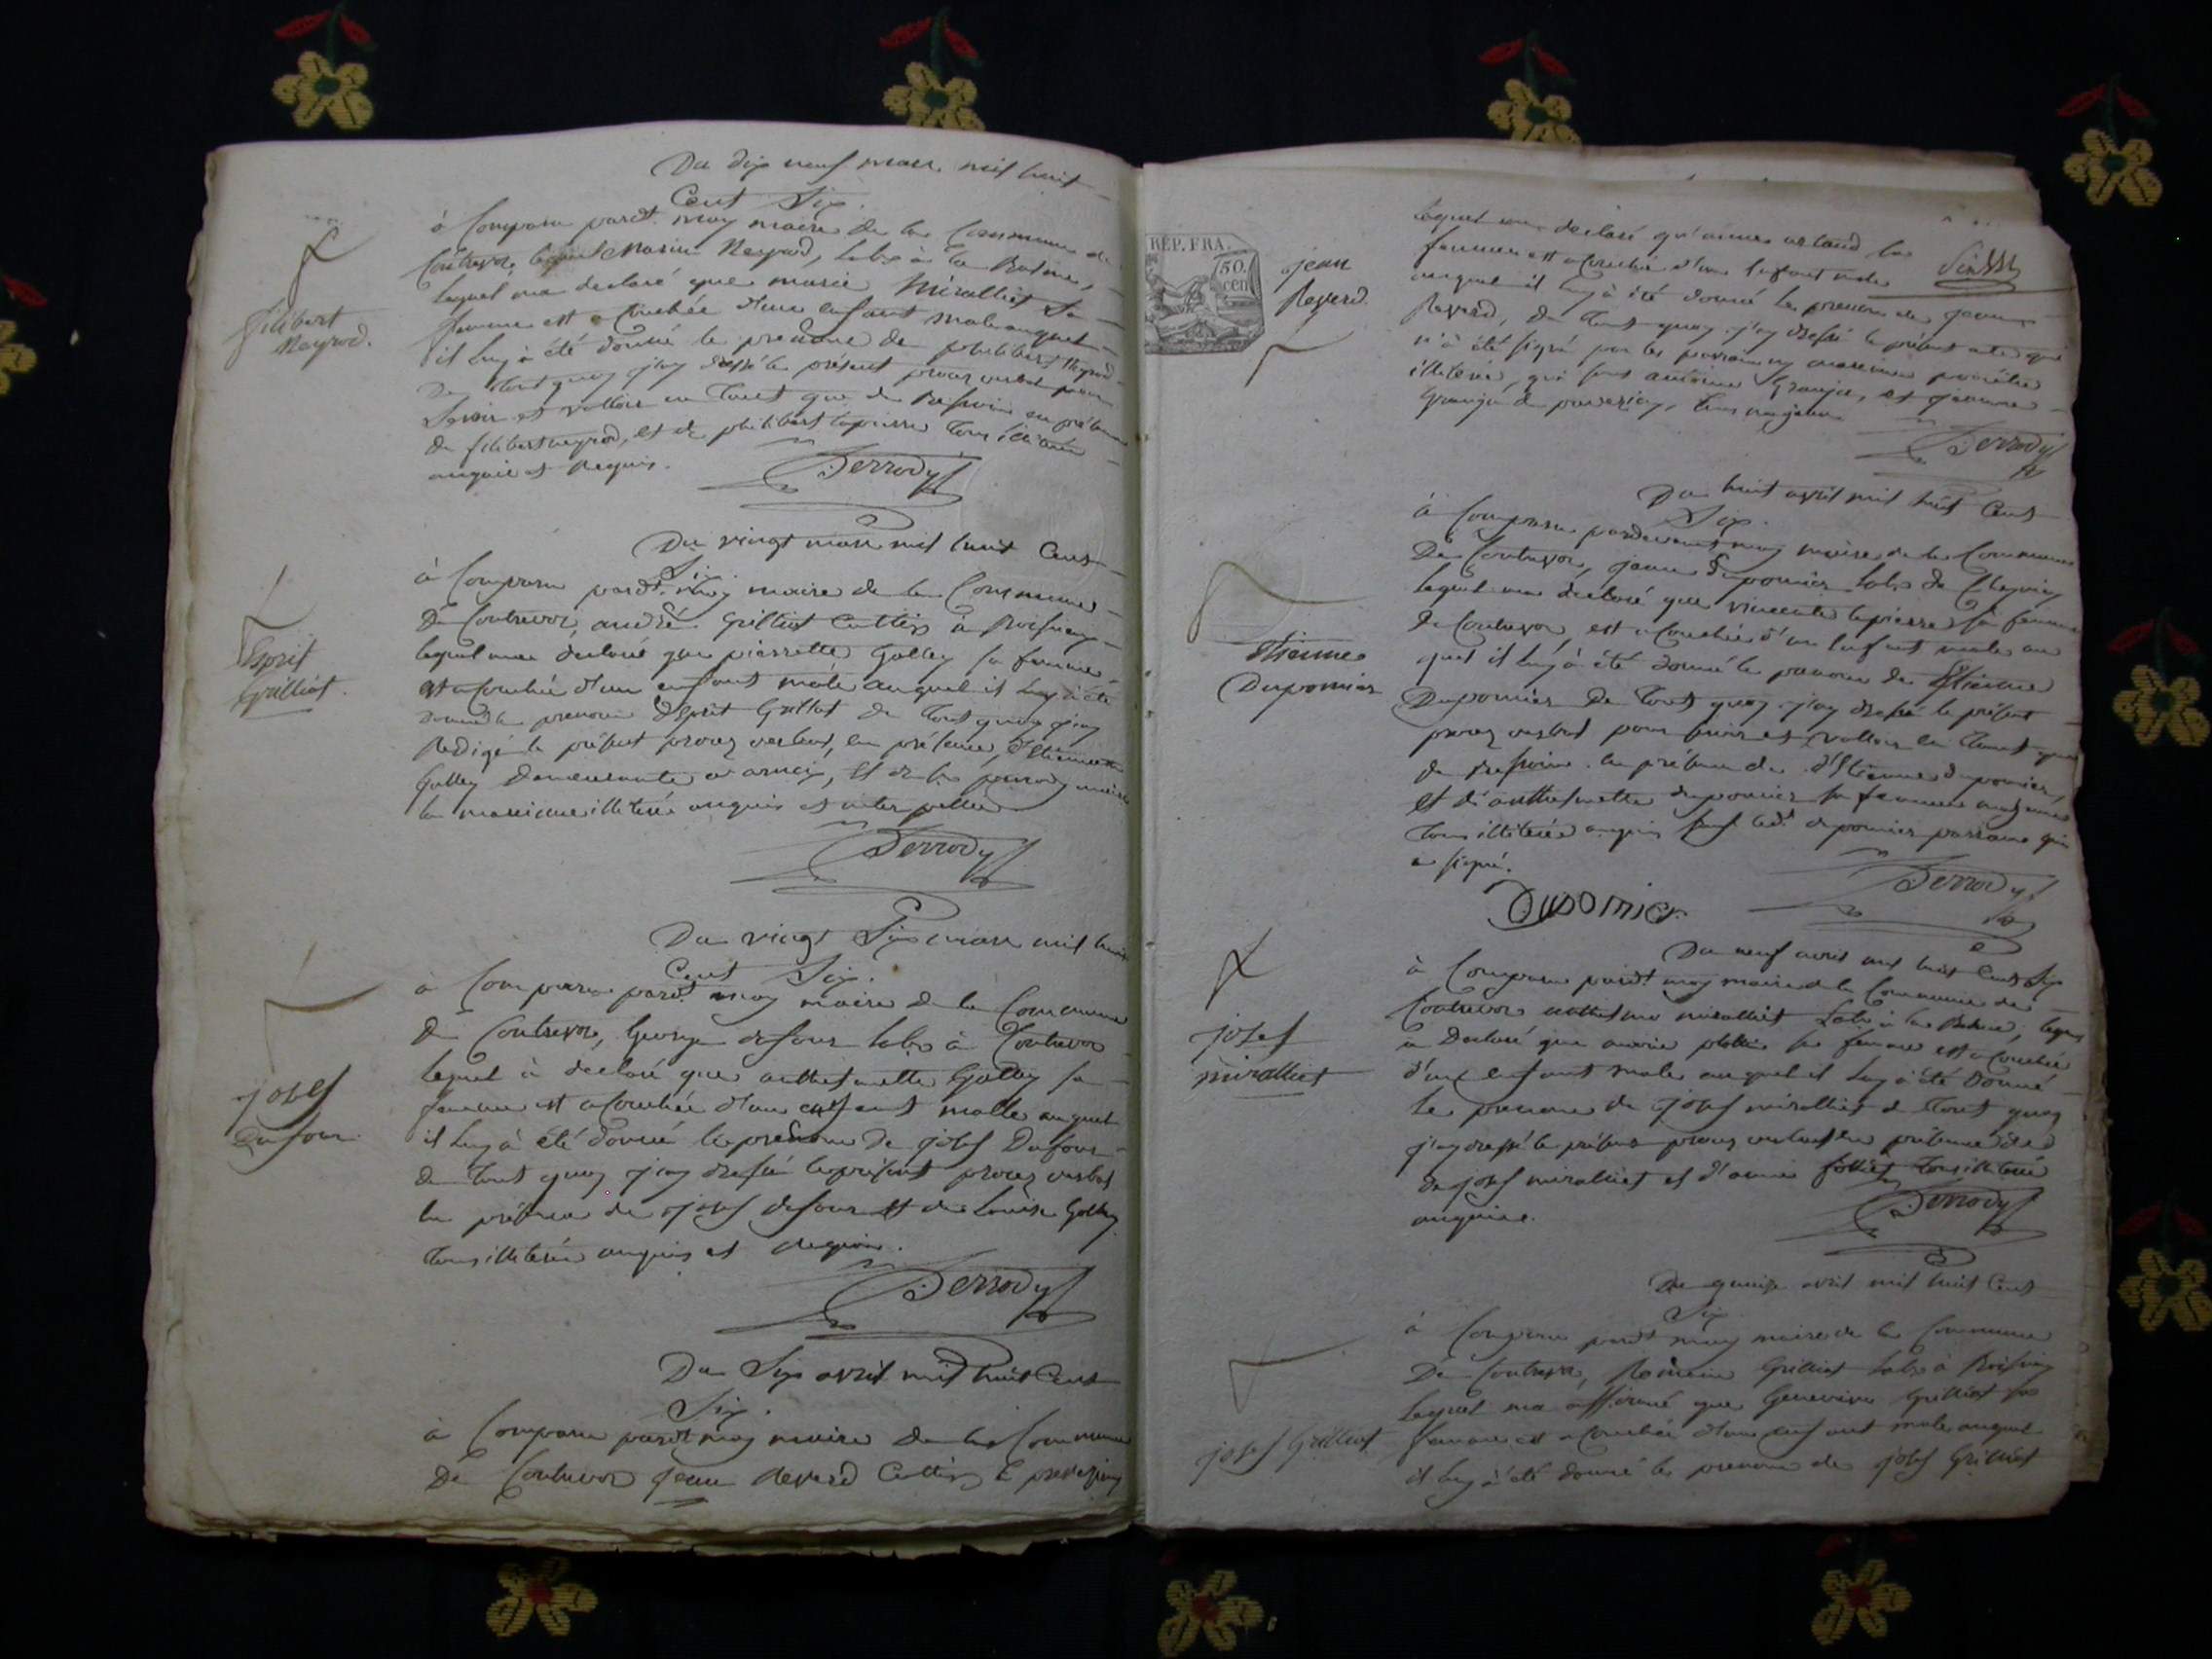 Du dix neuf mars mil huit
Cent Six.
à Comparu pardt. moy maire de la Commune de
Contrevoz, Marin Neyrod, labr à la
lequel ma declaré que marie Miralliet Sa
femme est acouchée d'un enfant male auquel
il luy à été donné le prenome de philibert Neyrod
De tout quoy j'ay dressé le présent procez verbal pour
Servir et valloir en tout que de Besoin en présence
de filibert neyrod, et de philibert lapierre tous illiteré
anquis et Requis.
filibert
Neyrod.
Perrody
Du vingt mars mil huit Cens
Six.
à Comparu pardt. moy maire de la Commune
De Contrevoz, andré Grilliet Cultiv à
lequel ma declaré que pierrette Golley sa femme
est acouchée d'un enfant male auquel il luy à été
donné le prenome desprit Grilliet de tout quoy j'ay
Redigé le présent procez verbal, en présence, d'Etiennette
Golley Demeurante a arneix, et de la
la marieine illiteré anquis et interpellée
Esprit
Grilliet.
Perrody
Du vingt Six mars mil huit
Cent Six.
à Comparu pardt. moy maire de la Commune
De Contrevoz, George dufour labr à Contrevoz
lequel à declaré que anthelmette Golley sa
femme est acouchée d'un enfant malle auquel
il luy à été donné le prénome De josef Dufour
de tout quoy j'ay dressé le présent procez verbal
en présence de josef dufour et de Louise Golley
tous illiterés anquis et Requis.
josef
Dufour
Perrody
Du Six avril mil huit Cent
Six.
à Comparu pardt moy maire de la Commune
De Contrevoz jean Reverd Cultiv à
REP. FRA.
50.
cen
jean
Reverd.
lequel ma declaré qu'aimée artaud sa
femme est acouchée d'un enfant male
auquel il luy à été donné le prenome de jean
Reverd, de tout quoy j'ay dressé le présent acte qui
n'à été signé par les parrain ny marieine
illiteré, qui sont antoine Granjer, et jeanne
Granjer de
Perrody
Du huit avril mil huit Cent
Six.
à Comparu pardevant moy maire de la Commune
De Contrevoz, jean Duponier labr de
lequel ma declaré que vincente lapierre sa femme
de Contrevoz, est acouchée d'un enfant male au
quel il luy à été donné le prenome de Etienne
Duponier De tout quoy j'ay dressé le présent
procez verbal pour servir et valloir en tout que
de Besoin. en présence de d'Etienne duponier,
et d'anthelmette duponier sa femme
tous illiteré anquis sauf ledt. duponier parrain qui
a signé.
Etienne
Duponier
Perrody
Duponier
Du neuf avril mil huit Cent Six
à Comparu pardt. moy maire de la Commune de
Contrevoz anthelme miralliet Labr à la, lequel
a Declaré que marie sa femme est acouchée
d'un enfant male auquel il luy à été Donné
le prenome de josef miralliet de tout quoy
j'ay dressé le présent procez verbal en présence
de josef miralliet et d'aimée tous illiteré
anquise.
josef
miralliet
Perrody
Du quinze avril mil huit Cent
Six
à Comparu pardt moy maire de la Commune
De Contrevoz, Romain Grilliet Labr à
lequel ma affirmé que Genevieve Grilliet sa
femme est acouchée d'un enfant male auquel
il luy à été donné le prenome de josef Grilliet
josef Grilliet